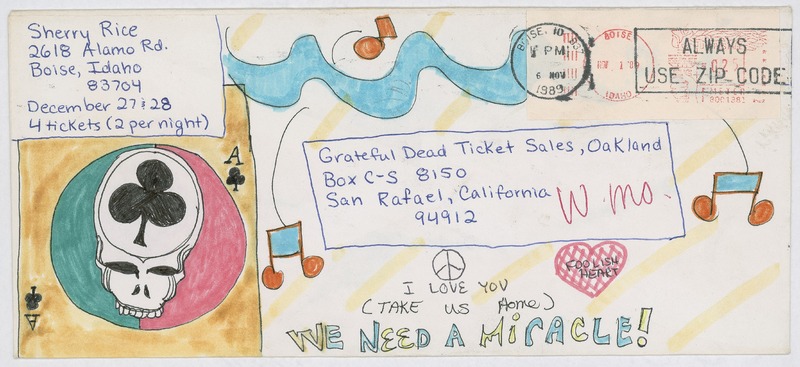 Sherry Rice
2618 Alamo Rd.
Boise, Idaho
83704
December 27 & 28
4 tickets (2 per night)
BOISE, ID
PM
6 NOV
1989
BOISE
IDAHO
ALWAYS
USE ZIP CODE
Grateful Dead Ticket Sales, Oakland
Box C-S 8150
San Rafael, California
94912
W. MO.
A
A
FOOLISH
HEART
I LOVE YOU
(TAKE US Home)
WE NEED A MiRACLE!